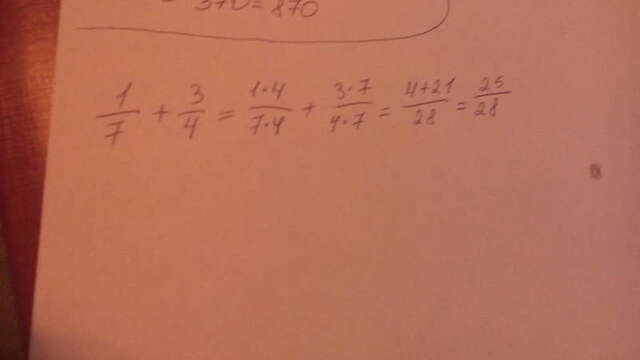 370 = 870
1/7 + 3/4 = 1·4/7·4 + 3·7/4·7 = 4+21/28 = 25/28